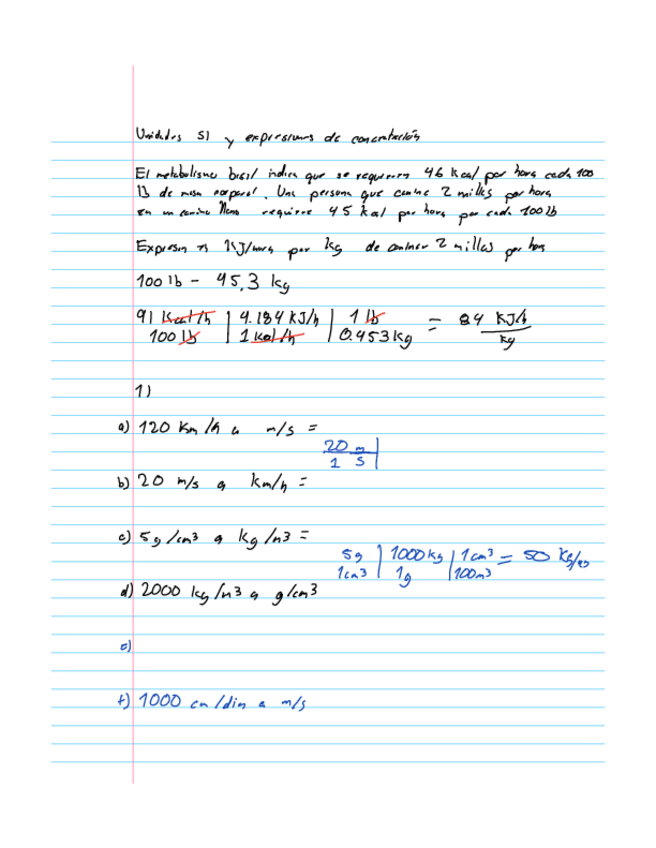 Unidades SI y expresiones de concentración
El metabolismo basal indica que se requieren 46 kcal por hora cada 100
lb de masa corporal. Una persona que camina 2 millas por hora
en un camino llano requiere 45 kcal por hora por cada 100 lb
Expresar KJ/hora por kg de caminar 2 millas por hora
100 lb - 45,3 kg
91 kcal/h | 4.184 KJ/h | 1 lb = 84 KJ/h
100 lb | 1 kcal/h | 0.453 kg kg
1)
a) 120 Km/h a m/s =
20 m |
1 s
b) 20 m/s a km/h =
c) 5g/cm3 a kg/m3 =
5g | 1000 kg | 1cm3 = 50 Kg/m3
1cm3 | 1g | 100m3
d) 2000 kg/m3 a g/cm3
e)
f) 1000 cm/dia a m/s